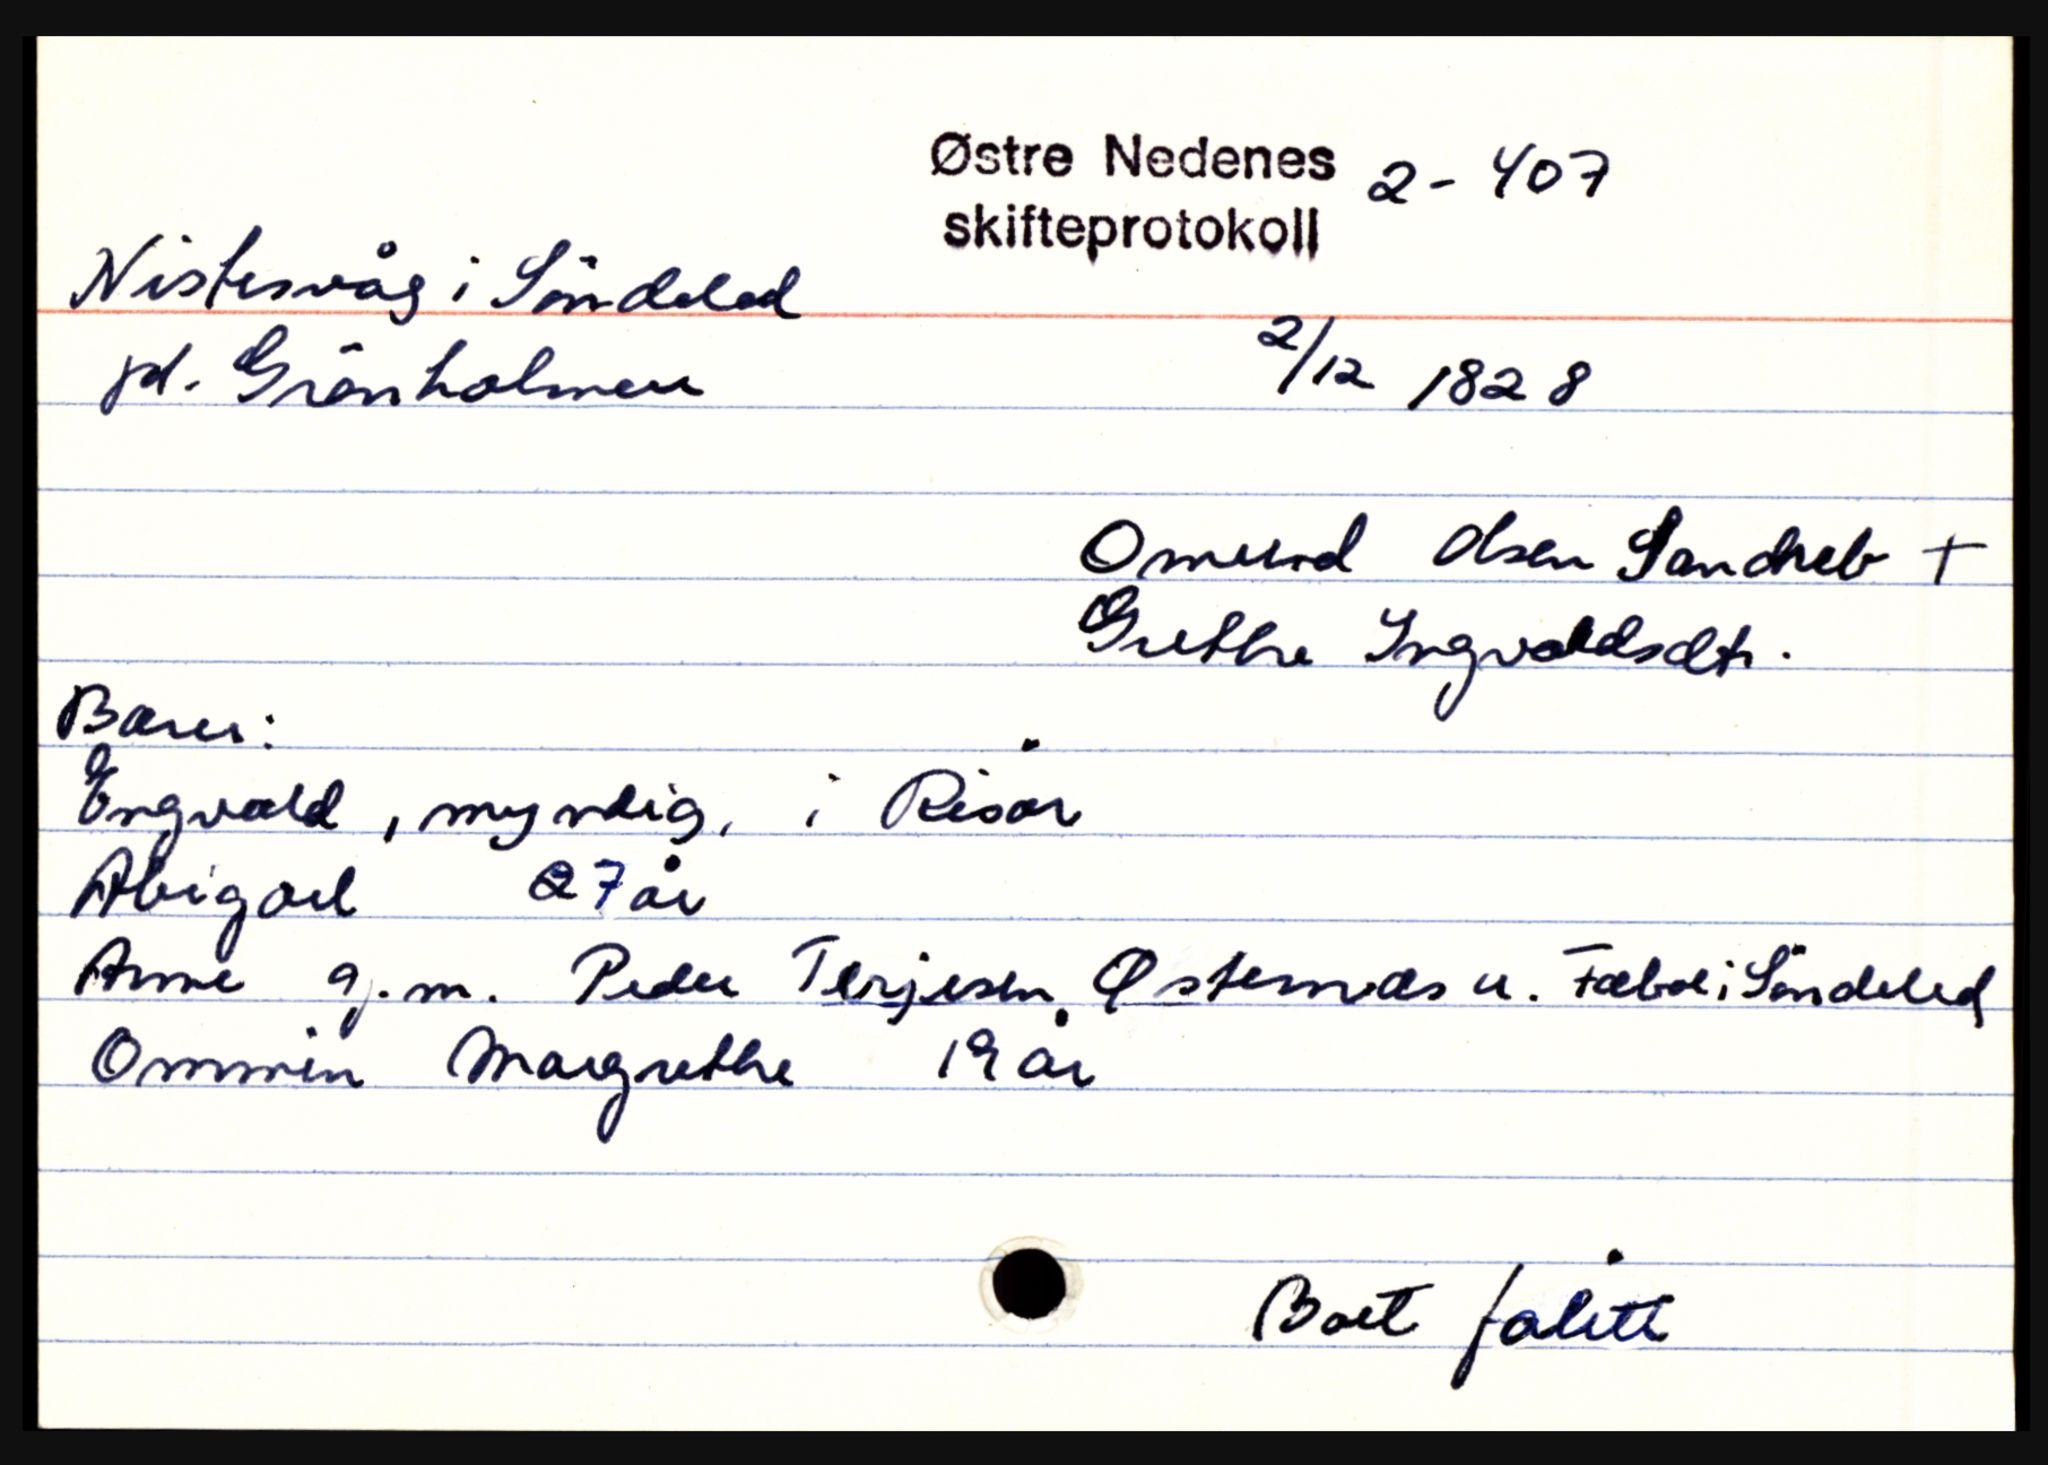 Østre Nedenes 2-407
skifteprotokoll
Nistesvåg i Söndeled
pl. Grönholmen
2/12 1828
Omund Olsen Sandreb +
Grethe Ingvaldsdtr.
Barn:
Engvald, myndig, i Risör
Abigael 27 år
Anne g.m. Peder Terjesen Østernæs u. Fæboe i Söndeled
Ommin Margrethe 19 år
Boet falitt